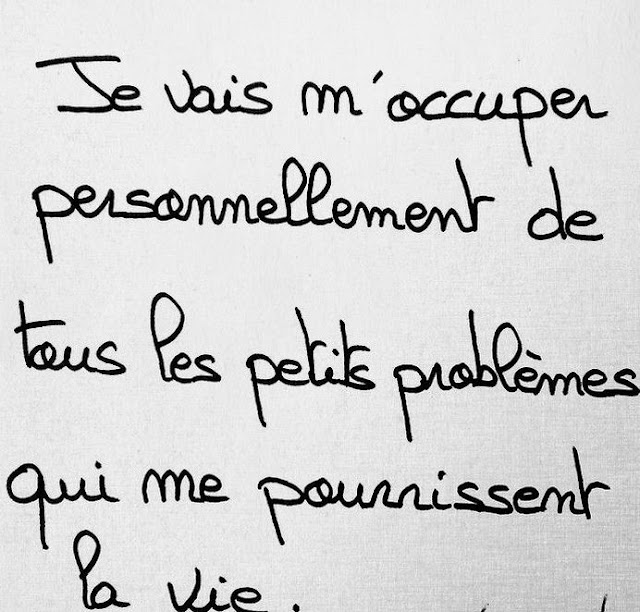 Je vais m'occuper
personnellement de
tous les petits problèmes
qui me pourrissent
la vie.